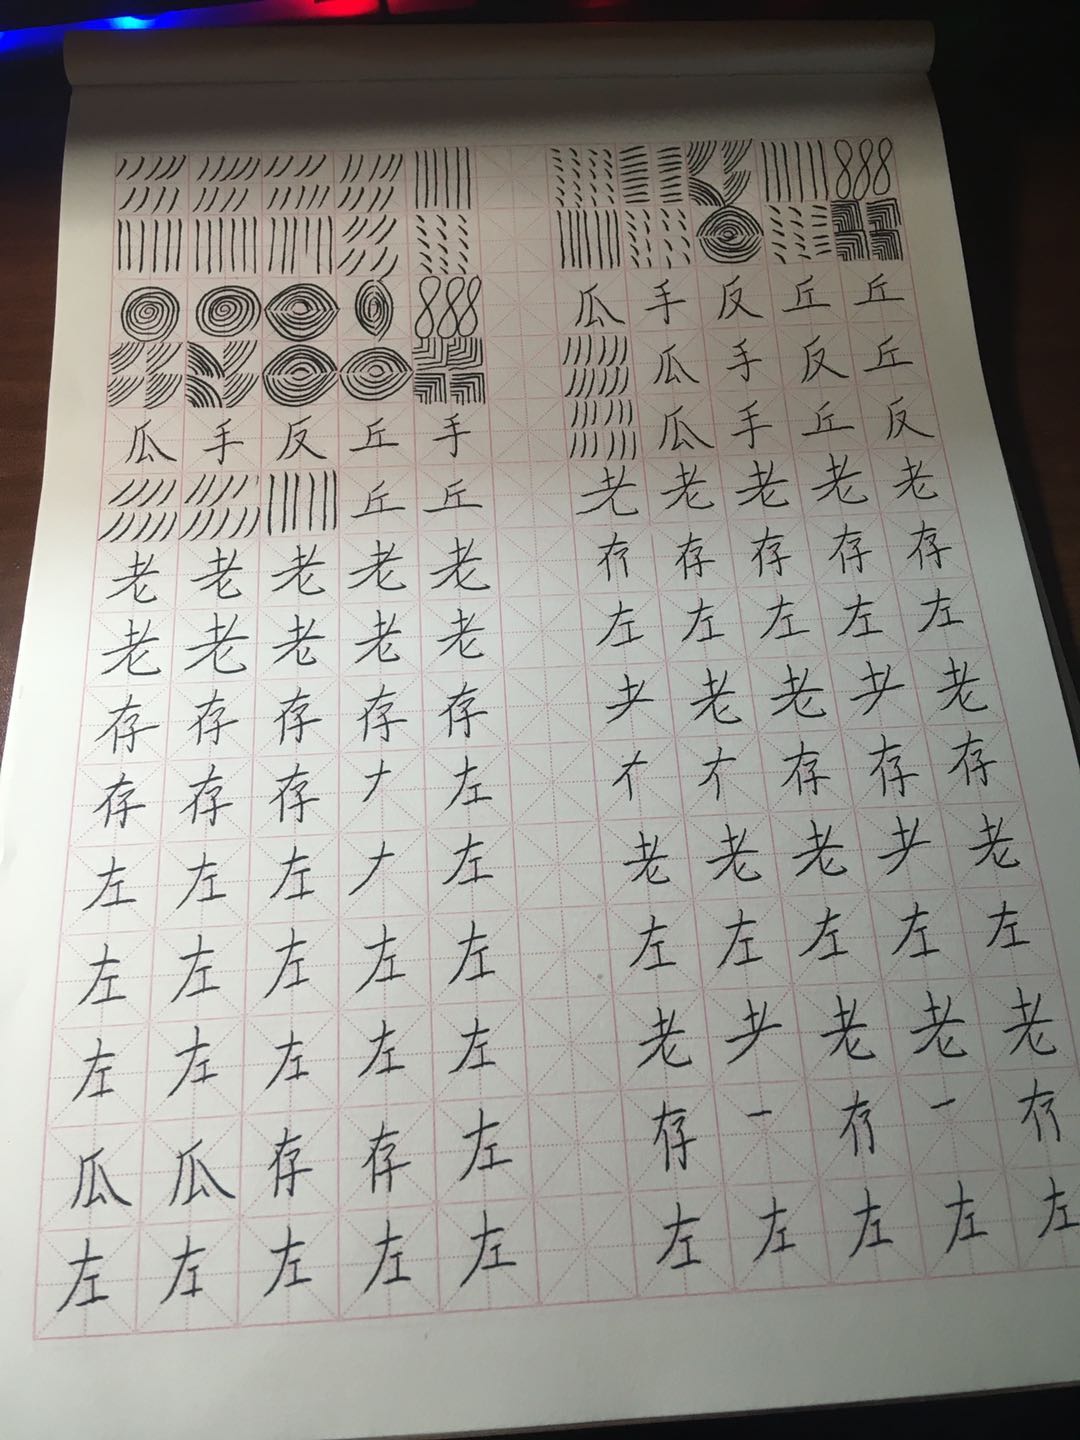 瓜手反丘手
丘丘
老老老老老
老老老老老
存存存存存
存存存𠂇左
左左左𠂇左
左左左左左
左左左左左
瓜瓜存存左
左左左左左
瓜手反丘丘
瓜手反丘
瓜手丘反
老老老老老
存存存存
左左左左左
耂老老耂老
存存存
老老老耂老
左左左左左
老耂老老老
存一一
左左左左左